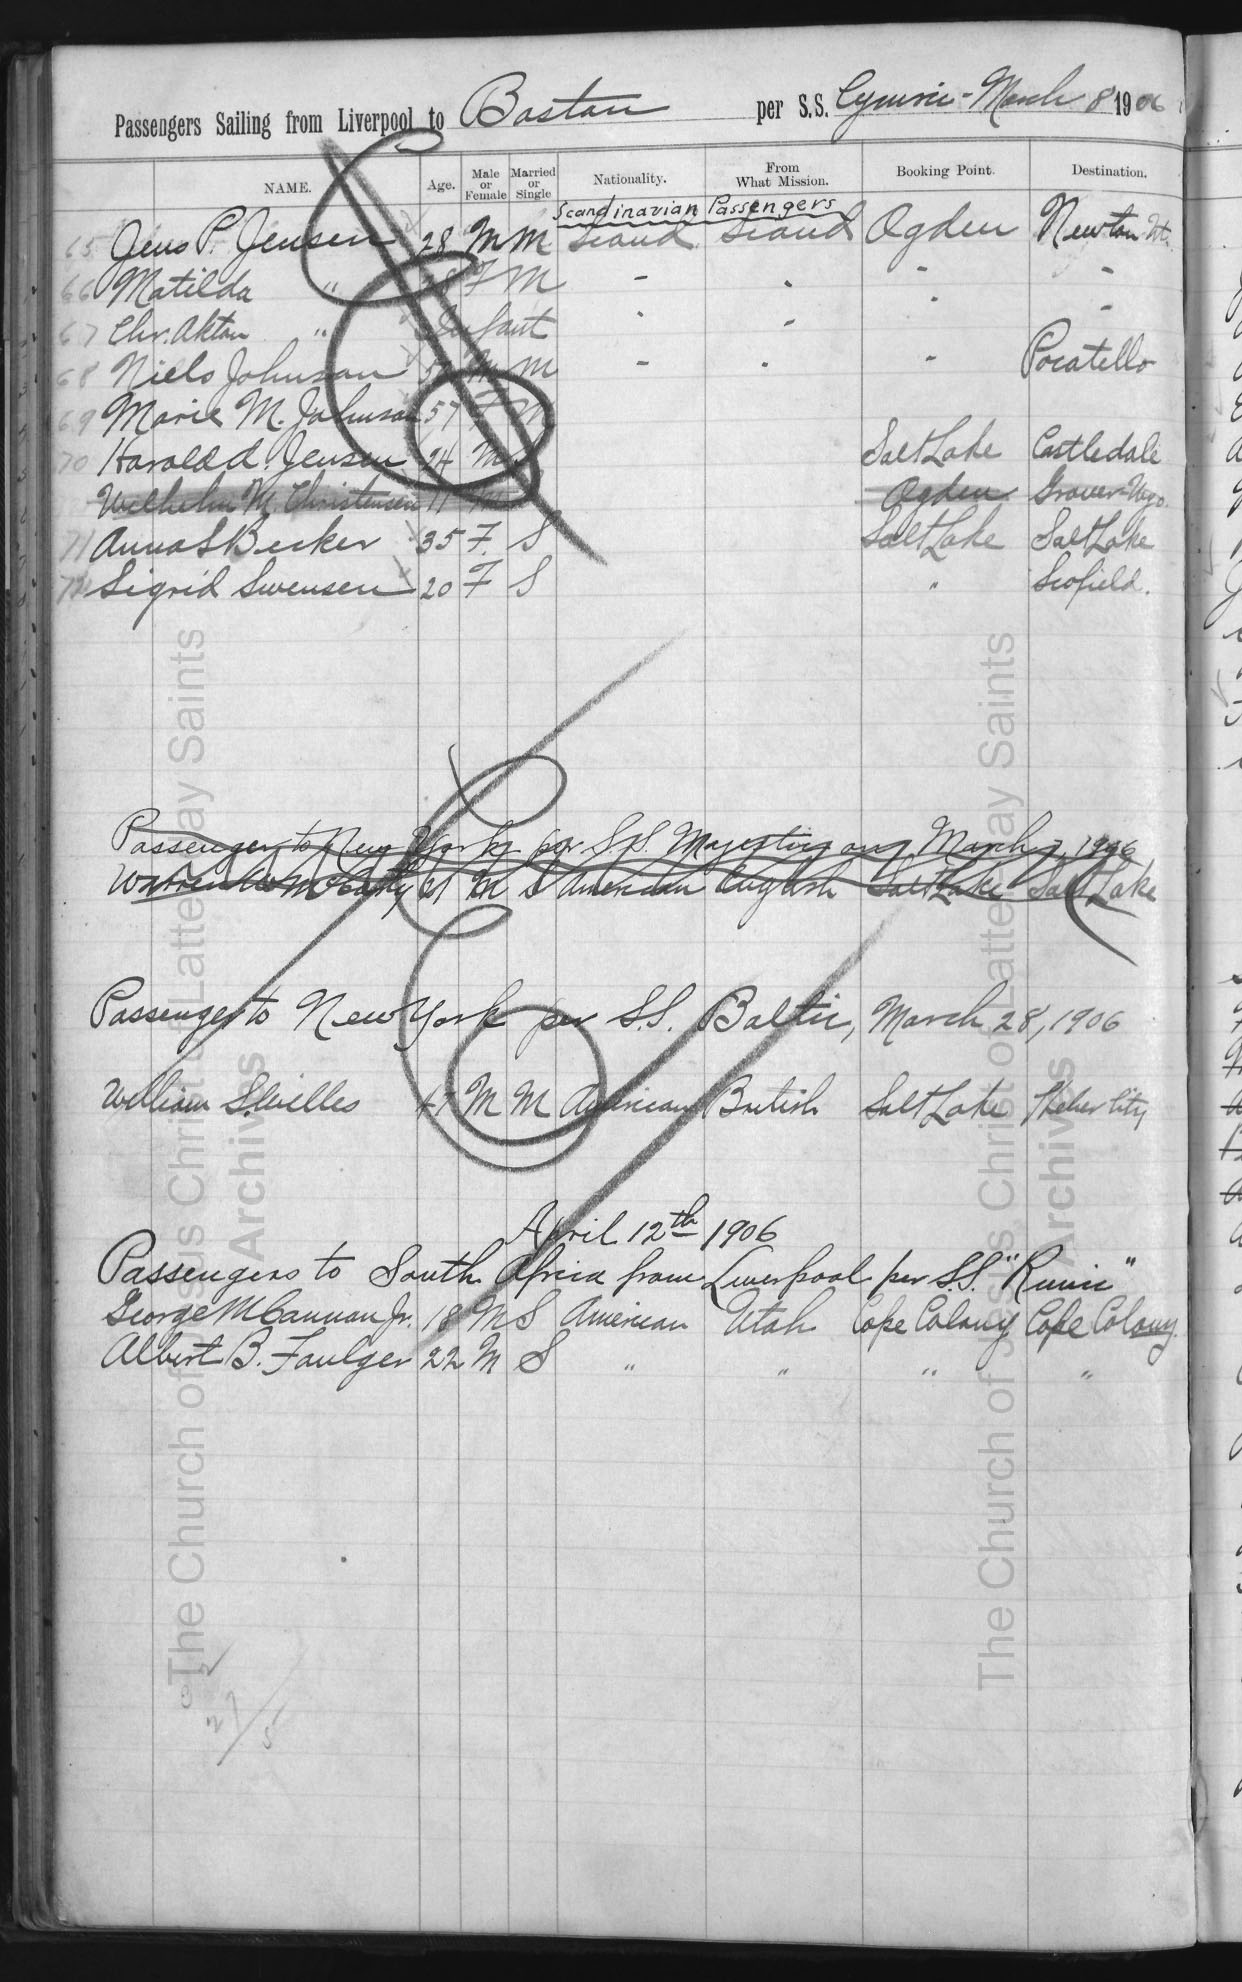 Passengers Sailing from Liverpool to Boston per S.S. Cymric - March 8 1906
NAME. Age. Male or Female Married or Single Nationality. From What Mission. Booking Point. Destination.
Scandinavian Passengers
65 Jens P. Jensen 28 M M Scand. Scand Ogden Newton Ut.
66 Matilda " 28 F M - . - -
67 Chr. Aktan " Infant
68 Niels Johnson M M - . - Pocatello
69 Marie M. Johnson 57 F M
70 Harald d. Jensen 24 M Salt Lake Castledale
Wilhelm M. Christensen 11 M Ogden Grover-Wyo.
71 Anna S Becker 35 F. S Salt Lake Salt Lake
72 Sigrid Swensen 20 F S " Scofield.
Passenger to New York per S.S. Majestic on March 7, 1906
McCarty M S American English Salt Lake Salt Lake
Passenger to New York per S.S. Baltic, March 28, 1906
William S. Willes 47 M M American British Salt Lake Heber City
April 12th 1906
Passengers to South Africa from Liverpool per S.S. "Runic"
George M Cannon Jr. 18 M S American Utah Cape Colony Cape Colony.
Albert B. Faulger 22 M S " " " "
The Church of Jesus Christ of Latter-day Saints
Archives
The Church of Jesus Christ of Latter-day Saints
Archives